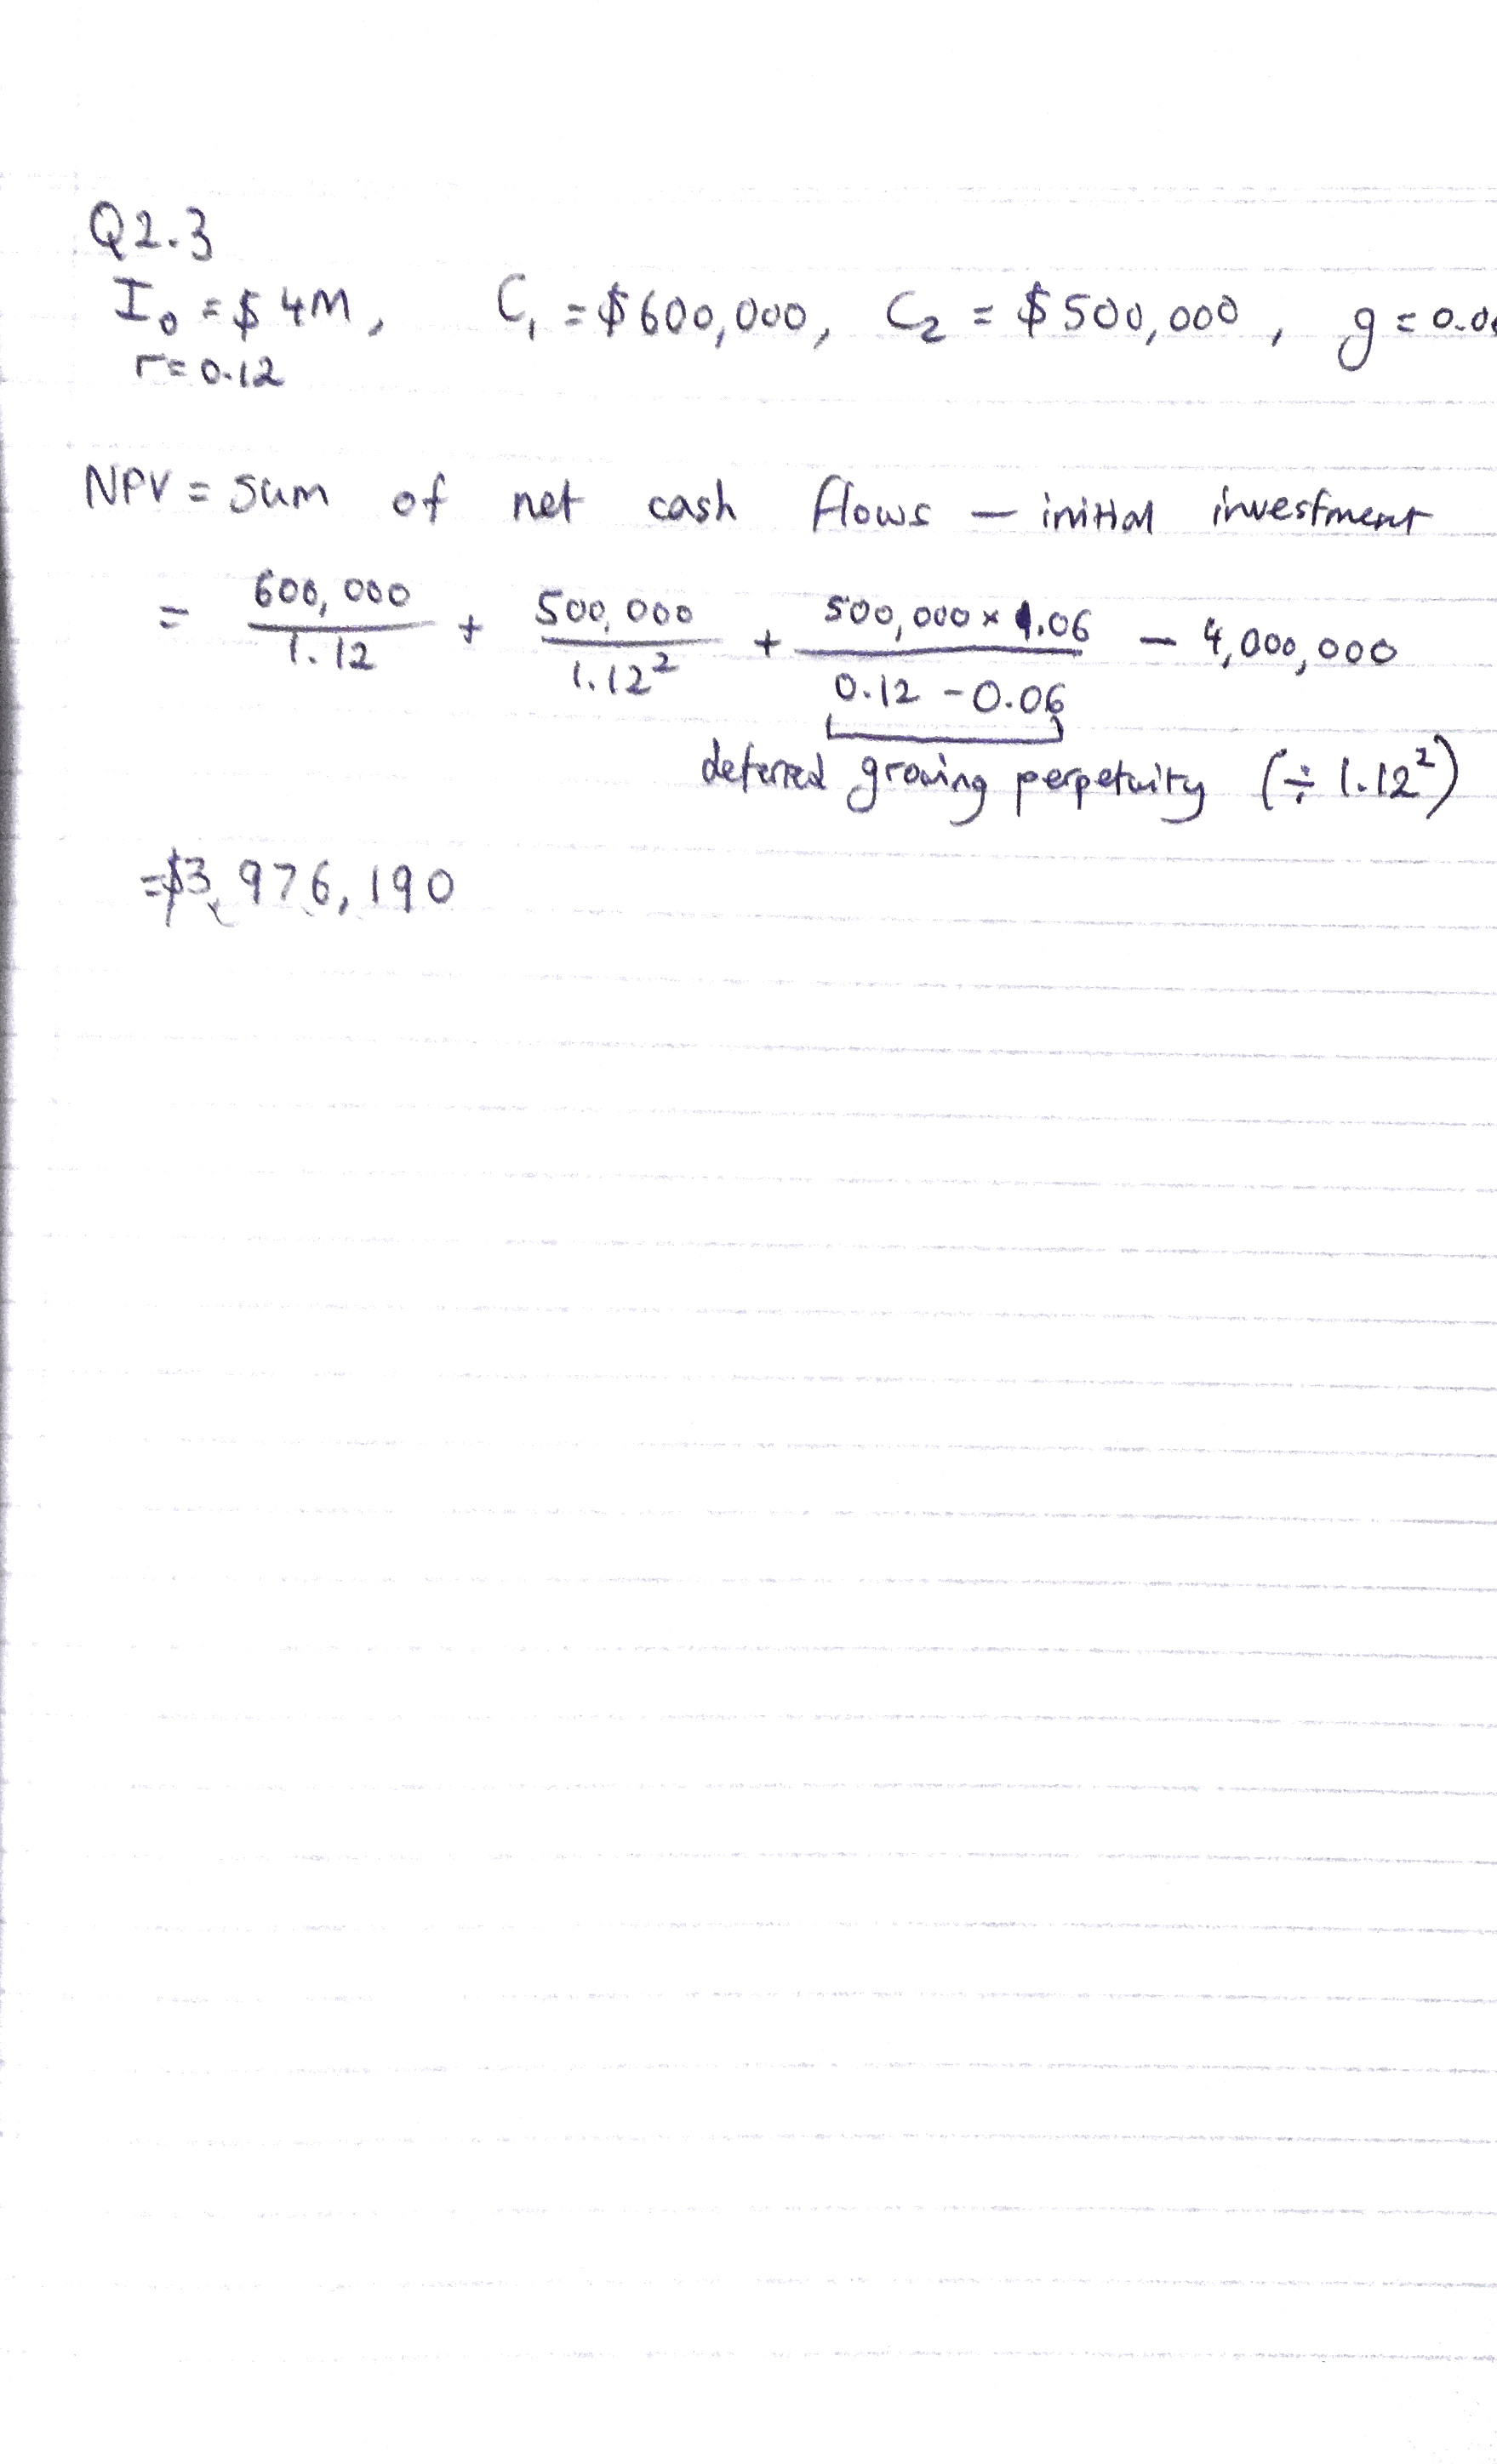 Q2.3
I₀ = $ 4M, C₁ = $600,000, C₂ = $500,000, g = 0.0
r = 0.12
NPV = sum of net cash flows – initial investment
= 600,000/1.12 + 500,000/1.12² + 500,000 × 1.06/0.12 - 0.06 – 4,000,000
deferred growing perpetuity (÷ 1.12²)
= $3,976,190